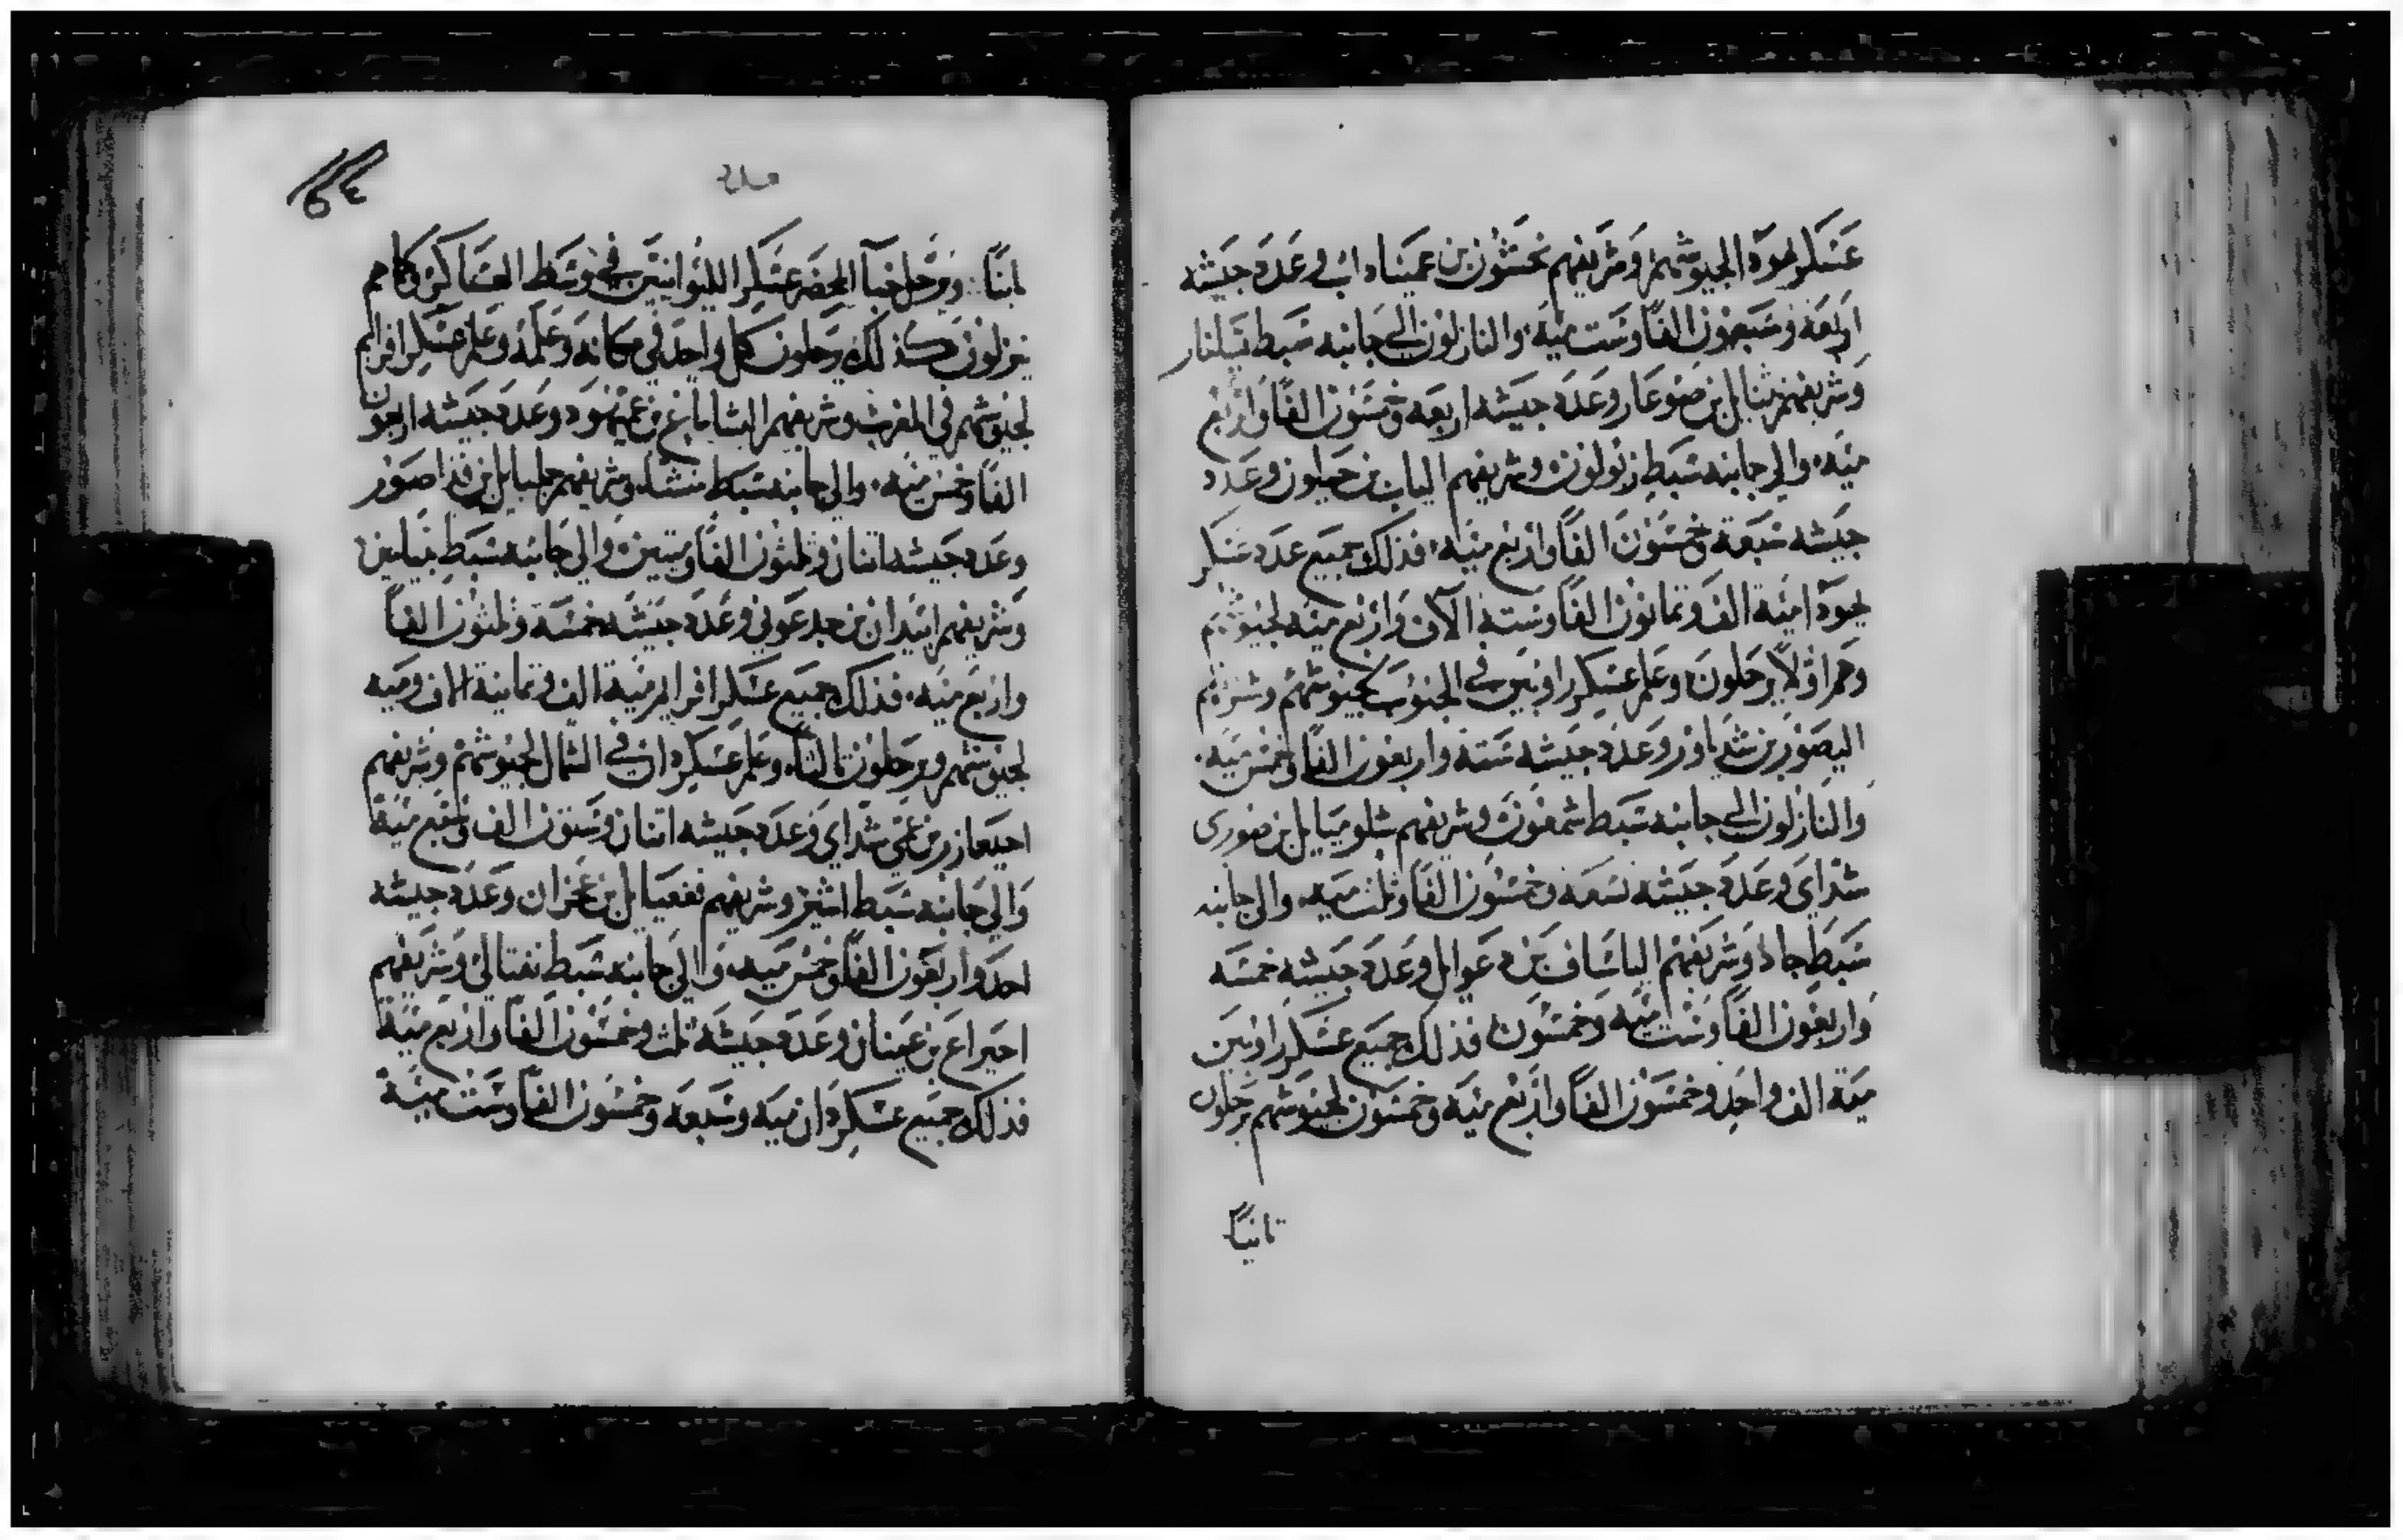 عسكر يهودا لجيوشهم وشريفهم نحشون بن عميناداب وعدد جيشه
اربعة وسبعون الفًا وست ميه والنازلون الي جانبه سبط يسلخار
وشريفهم نثنايل بن صوعار وعدد جيشه اربعه وخمسون الفًا واربع
ميه والي جانبه سبط زبولون وشريفهم الياب بن حيلون وعدد
جيشه سبعة وخمسون الفًا واربع ميه فذلك جميع عدد عسكر
يهودا مية الف وثمانون الفًا وستة الاف واربع ميه لجيوشهم
وهم اولًا يرحلون وعلم عسكر اوبين في الجنوب لجيوشهم وشريفهم
اليصور بن شدياور وعدد جيشه ستة واربعون الفًا وخمس ميه
والنازلون الي جانبه سبط شمعون وشريفهم شلوميايل بن صوري
شداي وعدد جيشه تسعه وخمسون الفًا وثلث ميه والي جانبه
سبط جاد وشريفهم الياساف بن دعوايل وعدد جيشه خمسه
واربعون الفًا وست ميه وخمسون فذلك جميع عسكر اوبين
مية الف واحد وخمسون الفًا واربع ميه وخمسون لجيوشهم يرحلون
تانيًا
٥٤
ويرحل خبآ المحضر عسكر الليوانيين في وسط العساكر كما هم
ينزلون كذلك يرحلون كل واحد في مكانه وعلمه وعلم عسكر افرايم
لجيوشهم في المغرب وشريفهم اليشاماع بن عميهود وعدد جيشه اربعون
الفًا وخمس ميه والي جانبه سبط منشا وشريفهم جمليايل بن فداصور
وعدد جيشه اتنان وثلثون الفًا وميتين والي جانبه سبط بنيامين
وشريفهم ابيدان بن جدعوني وعدد جيشه خمسة وثلثون الفًا
واربع ميه فذلك جميع عسكر افرايم مية الف وثمانية الاف وميه
لجيوشهم ويرحلون تالثًا وعلم عسكر دان في الشمال لجيوشهم وشريفهم
احيعازر بن عمي شداي وعدد جيشه اتنان وستون الف وسبع مية
والي جانبه سبط اشير وشريفهم فعيايل بن عخران وعدد جيشه
احد واربعون الفًا وخمس ميه والي جانبه سبط نفتالي وشريفهم
احيراع بن عينان وعدد جيشه ثلث وخمسون الفًا واربع مية
فذلك جميع عسكر دان ميه وسبعه وخمسون الفًا وست مية